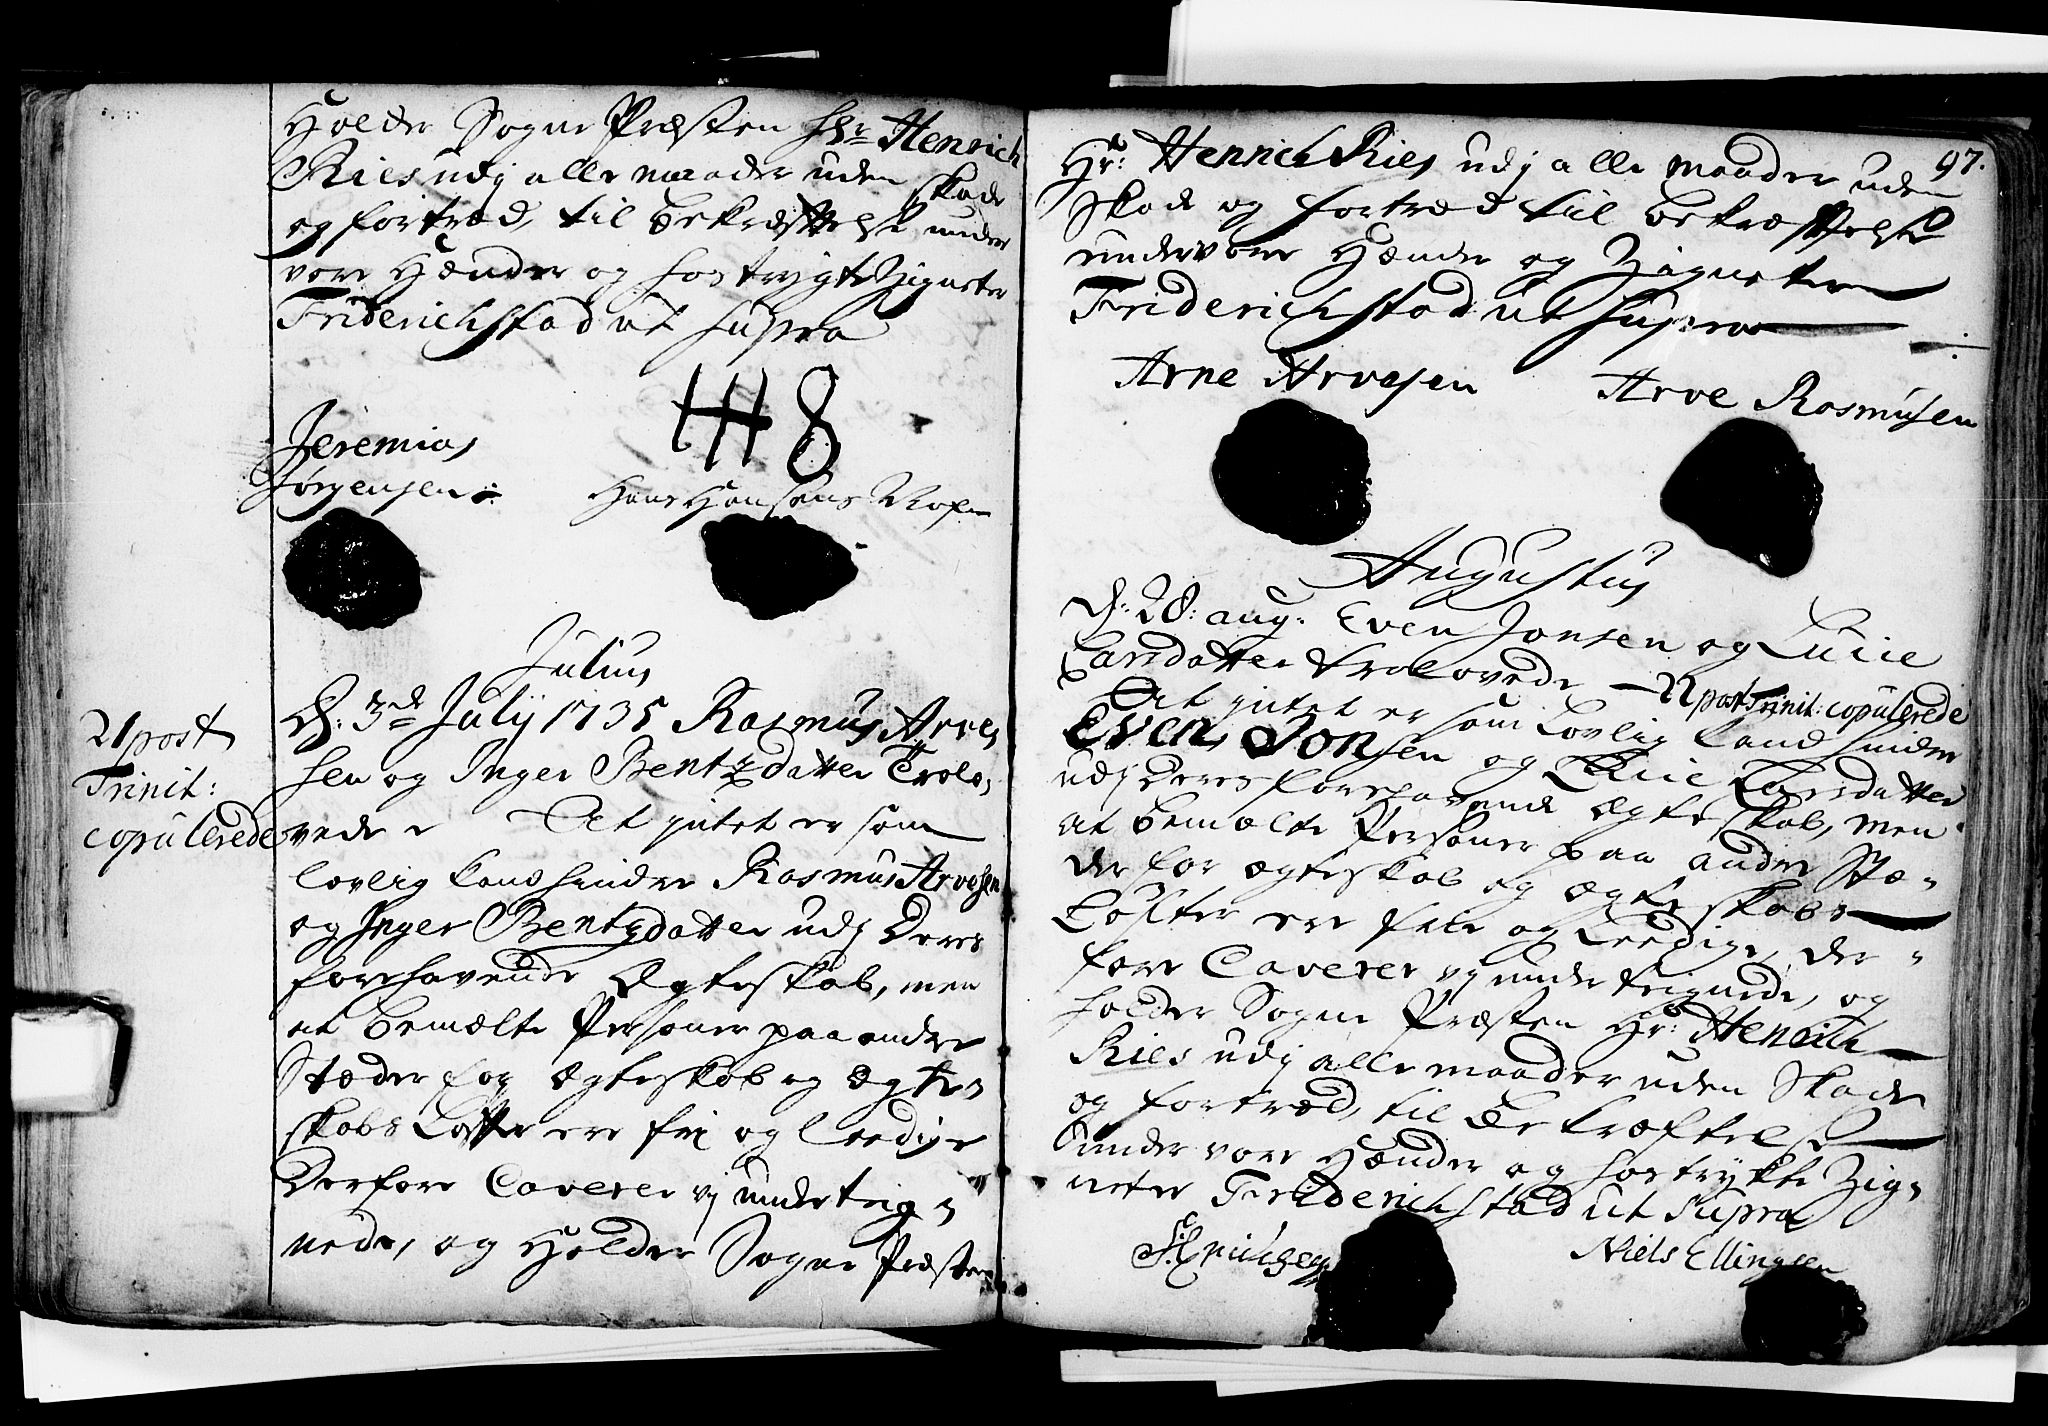 Holder Sogne Præsten Hr Henrich
Ries udj alle maader uden skade
og fortred, til bekræfftelse under
vore Hænder og hostrygte Zigneter
Friderichstad ut supra
HH8
Jeremias
Jørgensen
Hans Hansens
Julius
21 post
Trinit:
copulerede
D: 3de July 1735 Rasmus Arve,
sen og Inger Bentzdatter Trolo,
vede At intet er som
lovlig kand hindre Rasmus Arvesen
og Inger Bentzdatter udj Deres
forehavende Ægteskab, men
at bemælte Personer paa andre
Stæder for Ægteskab og Ægte,
skabs Løffte ere fri og leedige
Derfore Caverer vj underteig,
nede, og Holder Sogne Præsten
97.
Hr: Henrich Ries udj alle maader uden
Skade og fortred til bekræfftelse
under vore Hænder og Zigneter
Friderichstad ut supra
Arne Arvesen
Arve Rasmusen
Augustus
D: 28: aug. Even Jonsen og Lucie
Larsdatter trolovede — 22 post Trinit: copulerede
At intet er som Lovlig kand hinder
Even Jonsen og Lucie Larsdatter
udj Deres forehavende Ægteskab, men
at bemælte Personer paa andre Stæ-
der for Ægteskab og Ægteskabs
Løfter ere frie og Leedige, der-
fore Caverer vj underteignede, og
holder Sogne Præsten Hr: Henrich
Ries udj alle maader uden Skade
og fortred, til Bekræftelse
under vore Hænder og hostrykte Zig,
neter Friderichstad ut Supra
Niels Ellingsen